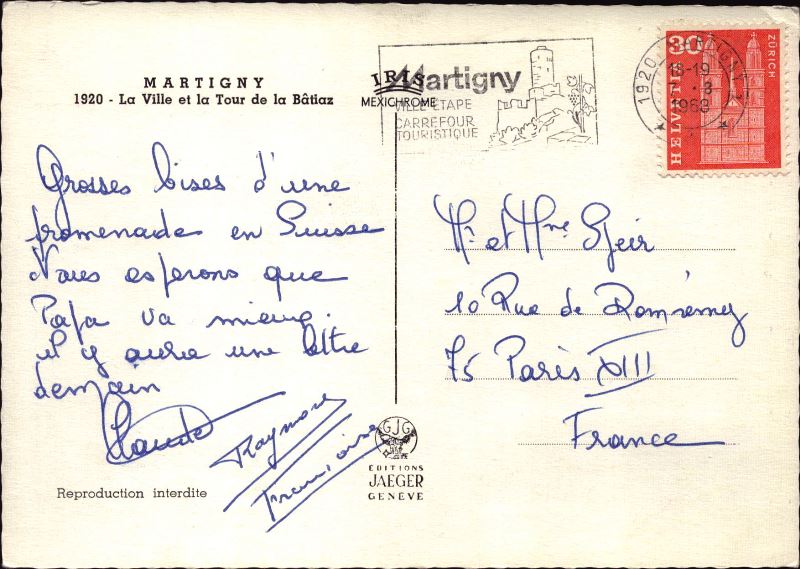 MARTIGNY
1920 - La Ville et la Tour de la Bâtiaz
IRIS
MEXICHROME
Martigny
VILLE ETAPE
CARREFOUR
TOURISTIQUE
1920 MARTIGNY 1
18-19
8
1968
30
HELVETIA
ZÜRICH
Grosses bises d'une
promenade en Suisse
Nous esperons que
Papa va mieux.
il y aura une lettre
demain
Claude
Raymond
Francoise
Mr et Mme
10 Rue de Domrémy
75 Paris XIII
France
GJG
EDITIONS
JAEGER
GENÈVE
Reproduction interdite